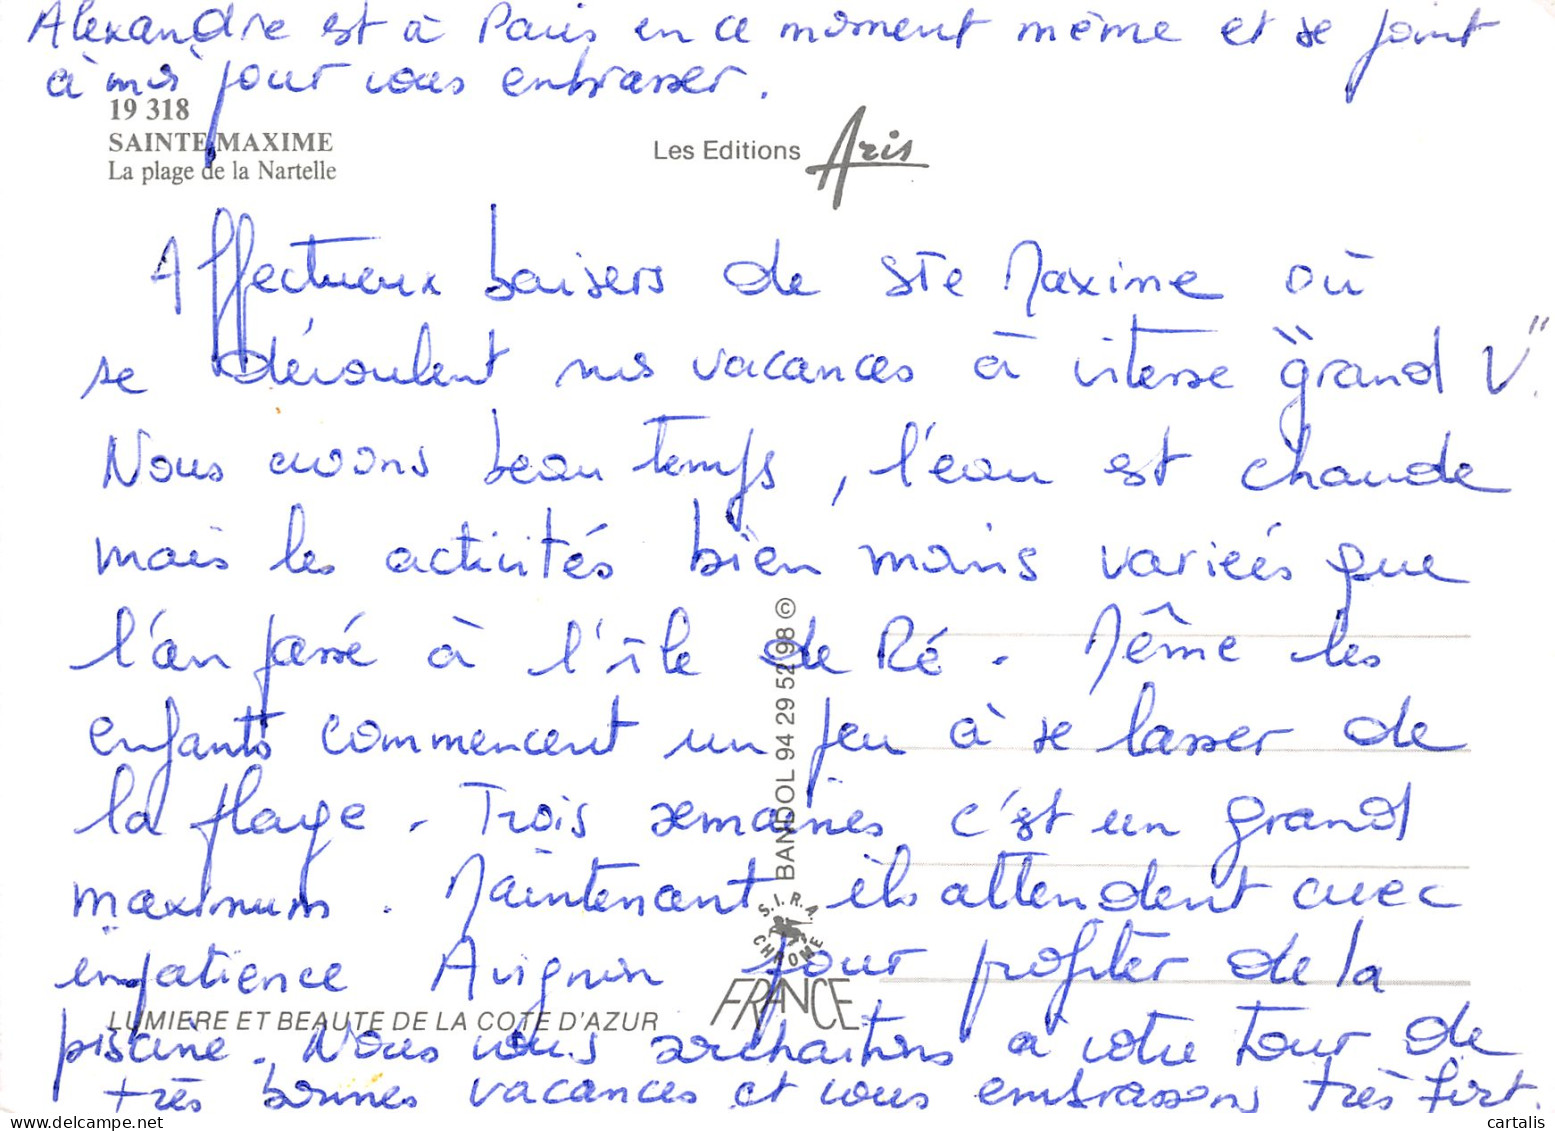 Alexandre est à Paris en ce moment même et se joint
à moi pour vous embrasser.
19 318
SAINTE MAXIME
La plage de la Nartelle
Les Editions Aris
Affectueux baisers de Ste Maxime où
se déroulent nos vacances à vitesse "grand V".
Nous avons beau temps, l'eau est chaude
mais les activités bien moins variées que
l'an passé à l'île de Ré. Même les
enfants commencent un peu à se lasser de
la plage. Trois semaines c'est un grand
maximum. Maintenant ils attendent avec
impatience Avignon pour profiter de la
piscine. Nous vous souhaitons à votre tour de
très bonnes vacances et vous embrassons très fort.
BANDOL 94 29 52 98 ©
S.I.R.A.
CHROME
FRANCE
LUMIERE ET BEAUTE DE LA COTE D'AZUR
www.delcampe.net
cartalis